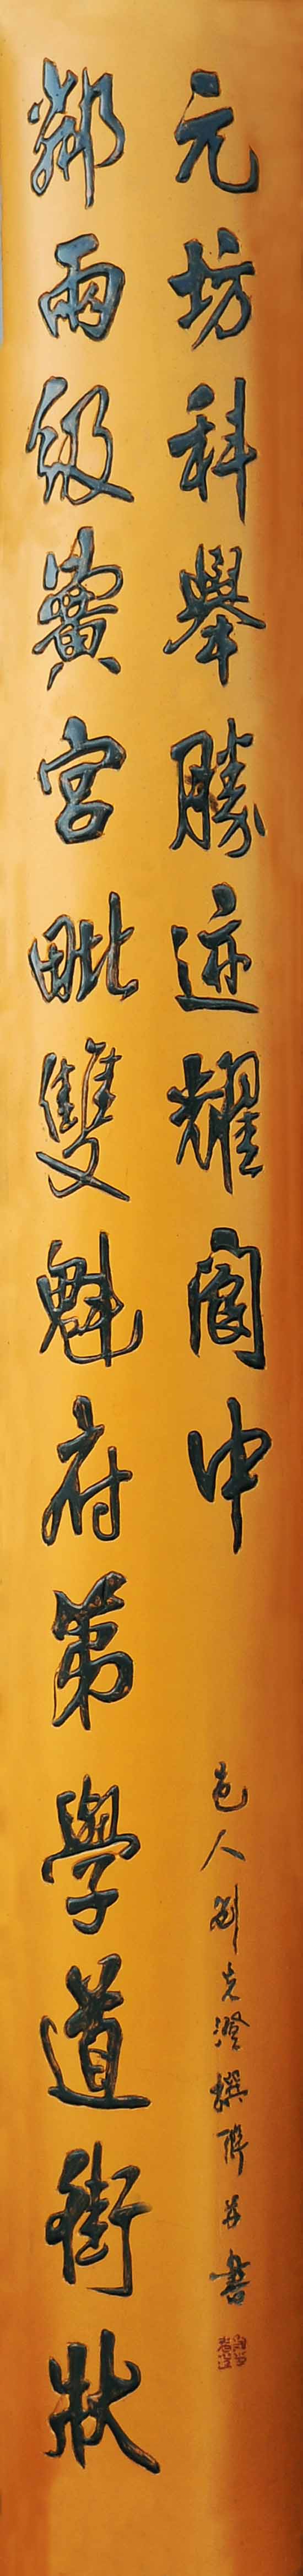 鄰兩級黌宮毗雙魁府第學道街狀
元坊科舉勝迹耀閬中
邑人劉先澄撰聯并書